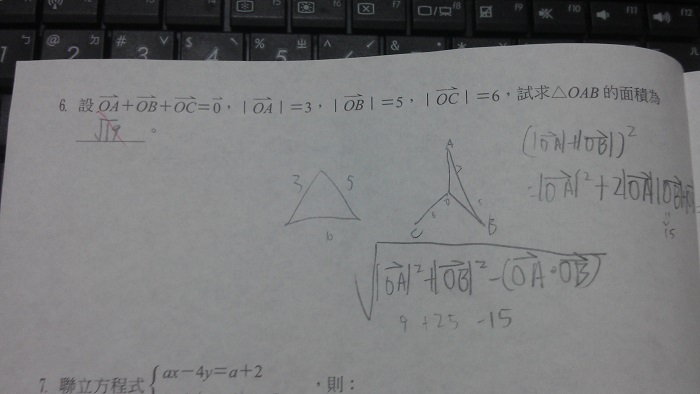 F7 F8 F9 F10 F11 F12
1 ㄅ @ 2 ㄉ # 3 $ 4 % 5 ㄓ ^ & *
6. 設 $\overrightarrow{OA}+\overrightarrow{OB}+\overrightarrow{OC}=\vec{0}$,|$\overrightarrow{OA}$|=3,|$\overrightarrow{OB}$|=5,|$\overrightarrow{OC}$|=6,試求△OAB 的面積為
√14 。
(|$\overrightarrow{OA}$|+|$\overrightarrow{OB}$|)²
=|$\overrightarrow{OA}$|²+2|$\overrightarrow{OA}$||$\overrightarrow{OB}$|
15
3 5
6
A
C B
√|$\overrightarrow{OA}$|²+|$\overrightarrow{OB}$|²-($\overrightarrow{OA}$·$\overrightarrow{OB}$)
9 +25 -15
7. 聯立方程式 { ax-4y=a+2 ,則: